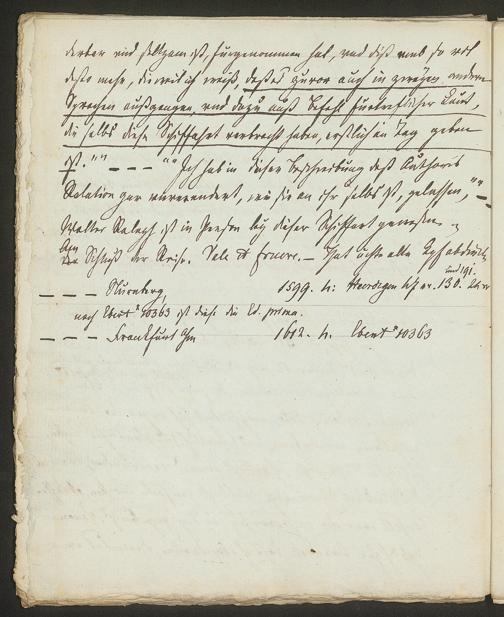 derber und seltzam ist, fürgenommen hab, und diß umb so viel
desto mehr, dieweil ich weiß, daß es zuvor auch in zweyen andern
Sprachen außgangen, und dazu auß Befehl fürtrefflicher Leut,
die selbs diese Schiffahrt verbracht haben, erstlich an Tag geben
ist. "" — — — "" Ich hab in dieser Beschreibung deß Authoris
Relation gar unverendert, wie sie an ihr selbs ist, gelassen, "" —
Walter Ralegh ist in Person bey dieser Schiffart gewesen. —
Am Schluß der Reise. Vale & fruere. — Hat acht alte
— — — Nürnberg, 1599. 4. 130. und 191.
nach Ebert 10363 ist diese die Ed. prima.
— — — Frankfurt 1612. 4. Ebert 10363